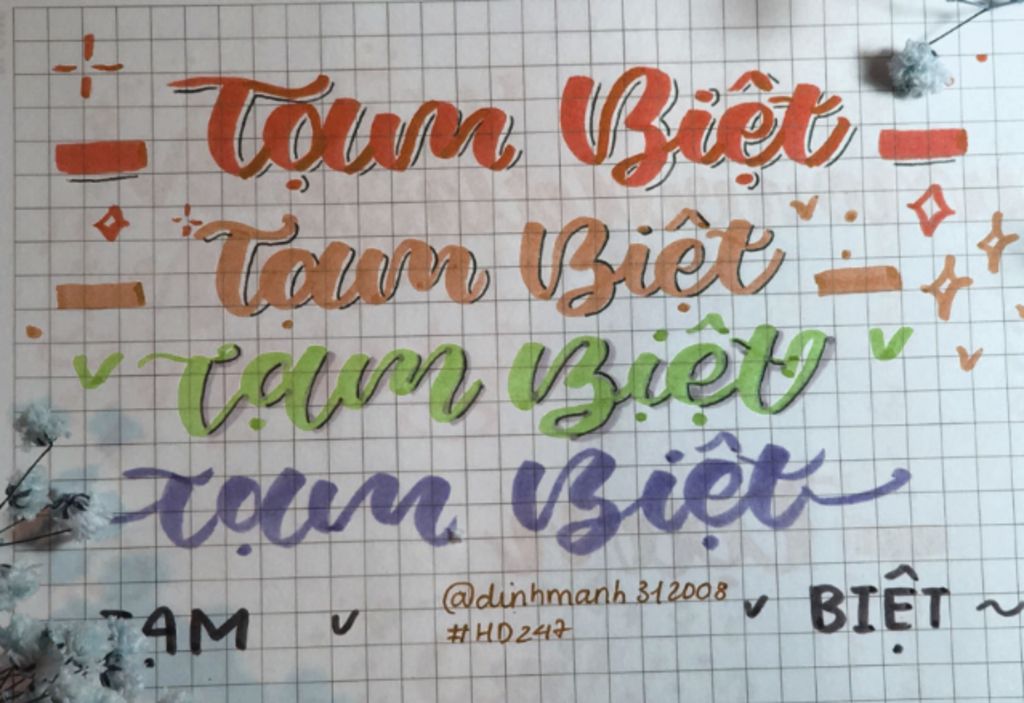 Tạm Biệt
Tạm Biệt
Tạm Biệt
Tạm Biệt
TẠM BIỆT
@dinhmanh312008
#HD247